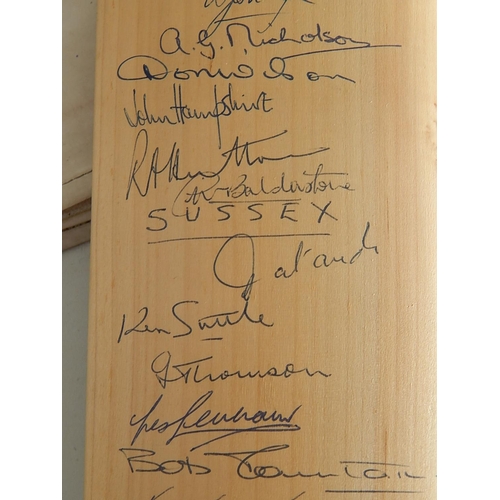 A.G. Nicholson
Don Wilson
John Hampshire
R A Hutton
Balderstone
SUSSEX
Ken Suttle
Thomson
Les Lenham
BOB